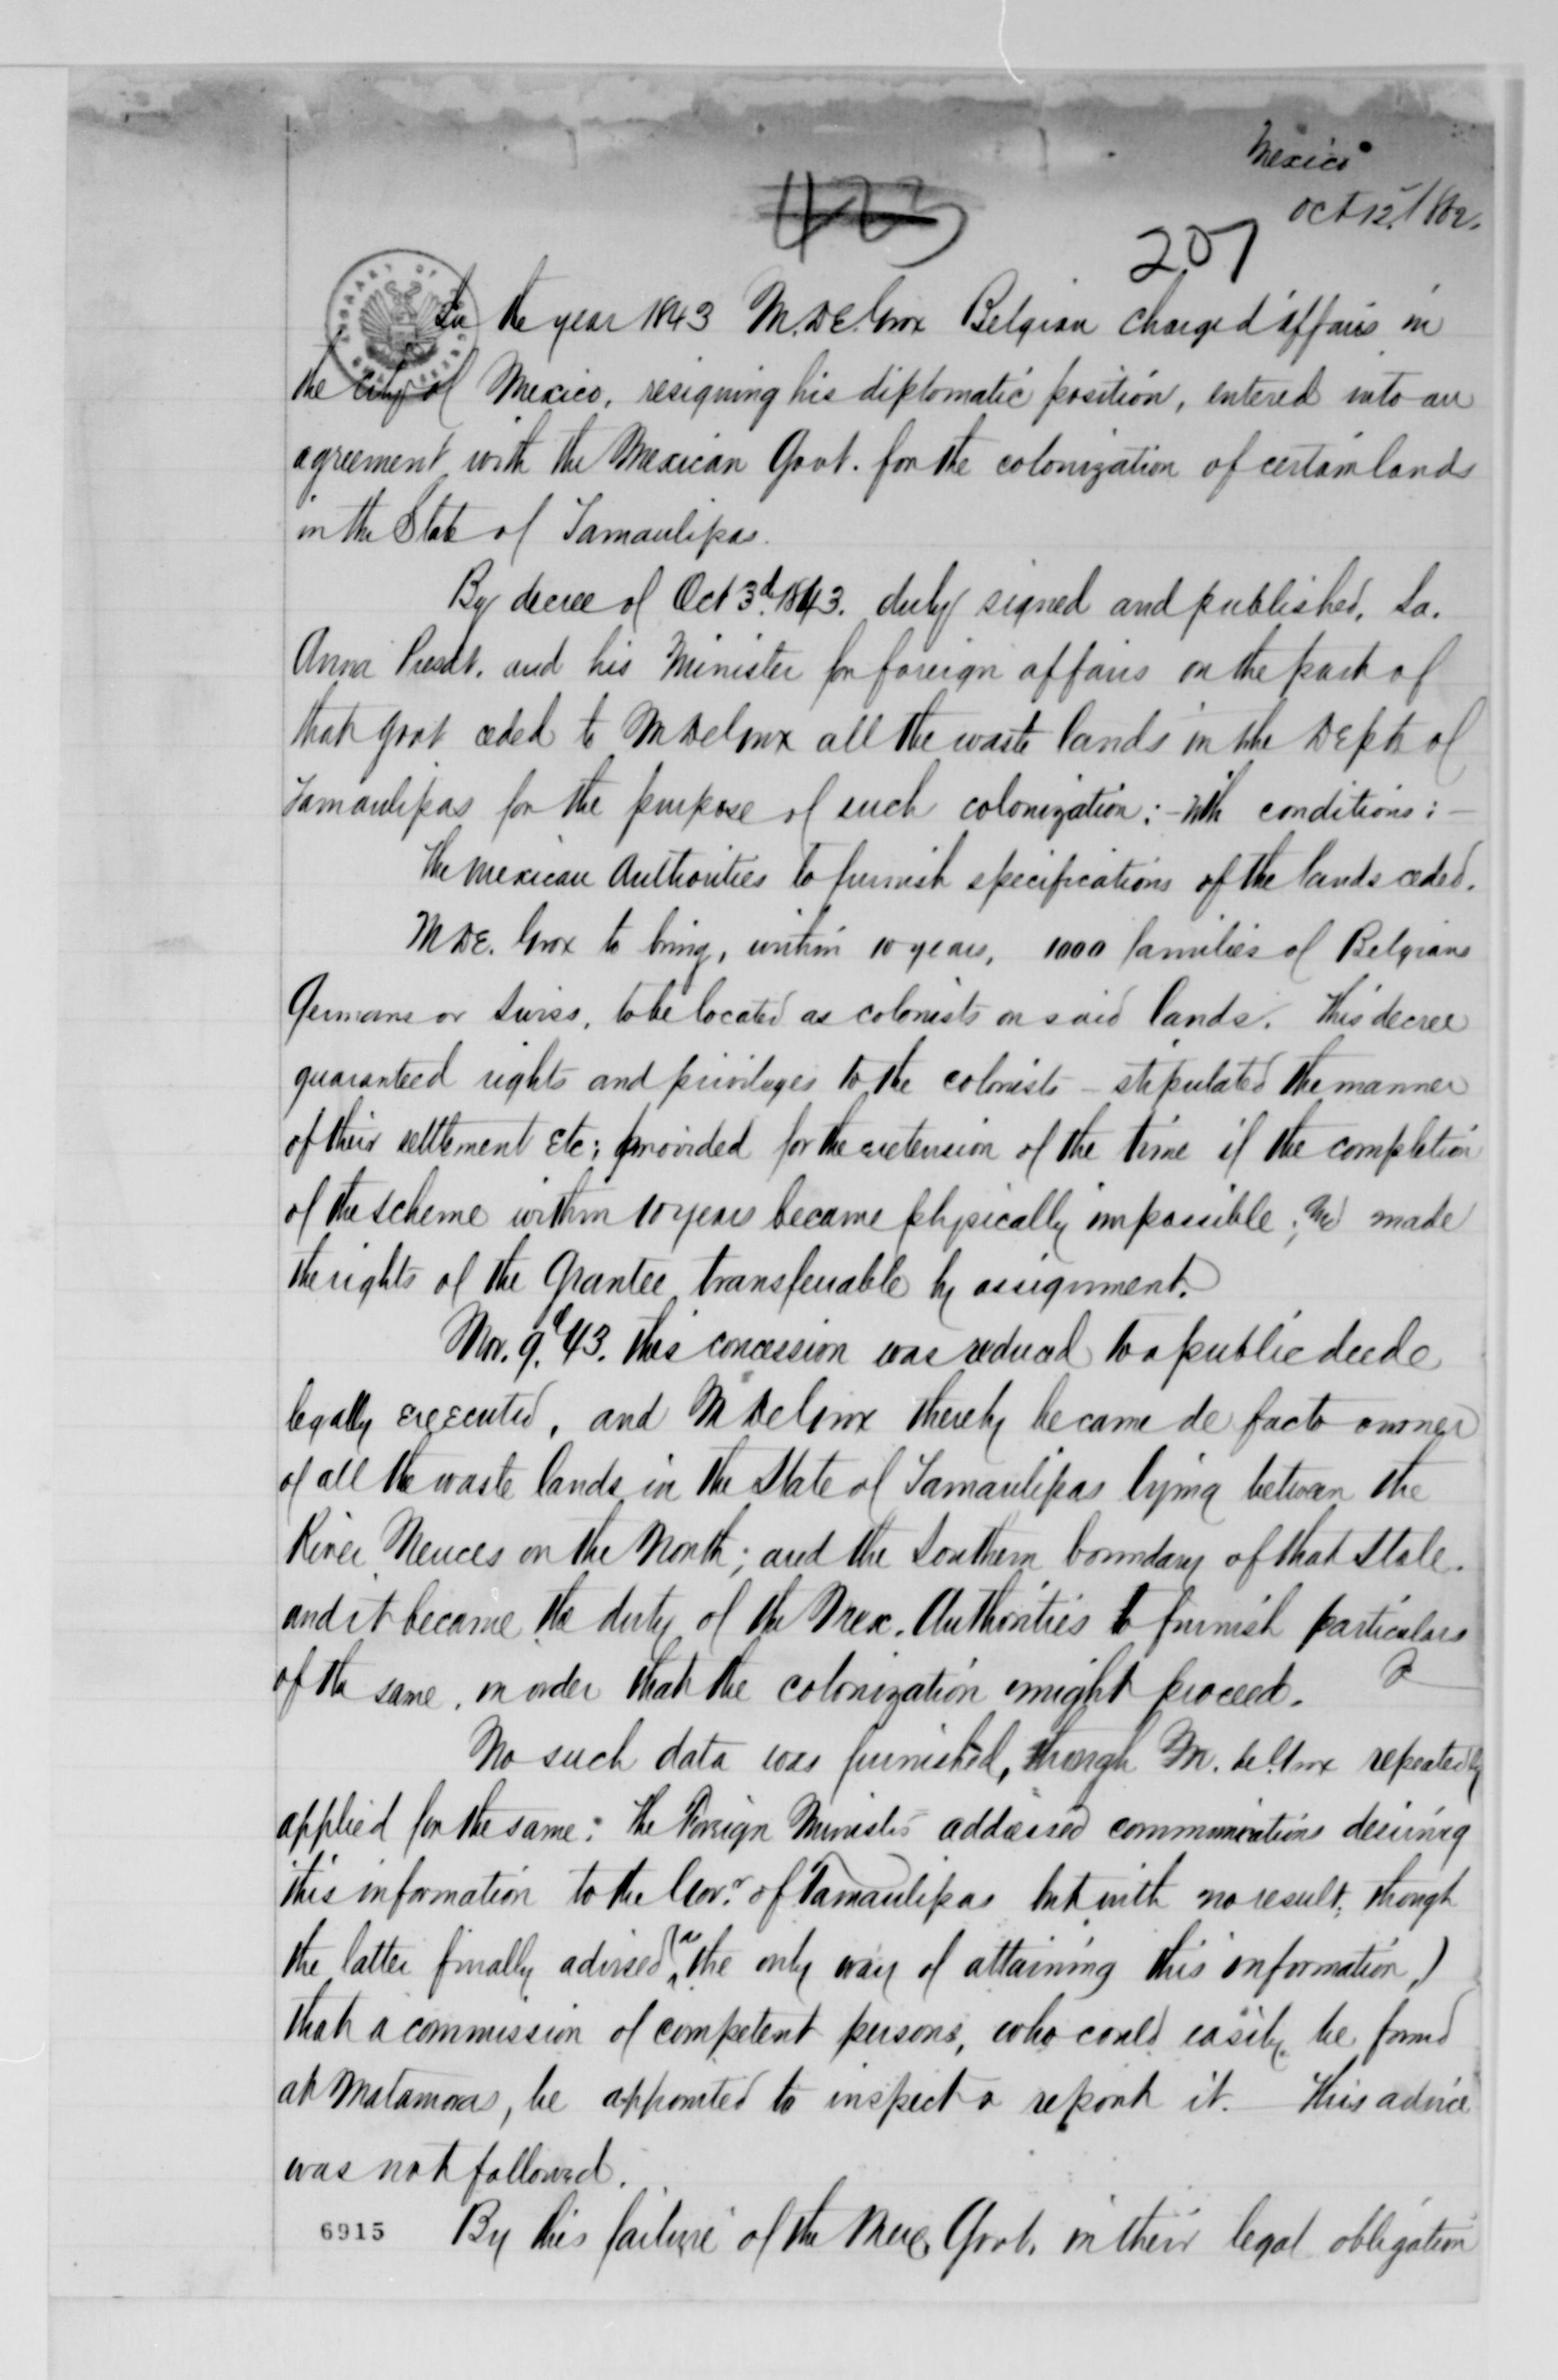 Mexico
Oct 12,
423
207
In the year 1843 M. De Grox Belgian charge d'affairs in
the City of Mexico, resigning his diplomatic position, entered into an
agreement with the Mexican Govt. for the colonization of certain lands
in the State of Tamaulipas.
By decree of Oct 3d. 1843. duly signed and published, Sa.
Anna Presdt. and his Minister for foreign affairs on the part of
that govt ceded to M De Grox all the waste lands in the Dept of
Tamaulipas for the purpose of such colonization: - With conditions: -
The Mexican Authorities to furnish specifications of the lands ceded.
M De. Grox to bring, within 10 years, 1000 families of Belgians
Germans or Swiss, to be located as colonists on said lands. This decree
guaranteed rights and privileges to the colonists - stipulated the manner
of their settlement etc; provided for the extension of the time if the completion
of the scheme within 10 years became physically impossible; and made
the rights of the Grantee transferrable by assignment.
Nov. 9d. 43. this concession was reduced to a public deede
legally executed, and M De Grox thereby became de facto owner
of all the waste lands in the State of Tamaulipas lying between the
River Neuces on the North; and the Southern boundary of that State.
and it became the duty of the Mex. Authorities to furnish particulars
of the same, in order that the colonization might proceed.
No such data was furnished, though M. De Grox repeatedly
applied for the same: the Foreign Minister addressed communications desiring
this information to the Govr. of Tamaulipas but with no result; though
the latter finally advised (as the only way of attaining this information,)
that a commission of competent persons, who could easily be found
at Matamoras, be appointed to inspect & report it. This advice
was not followed.
6915 By this failure of the Mex. Govt. in their legal obligation